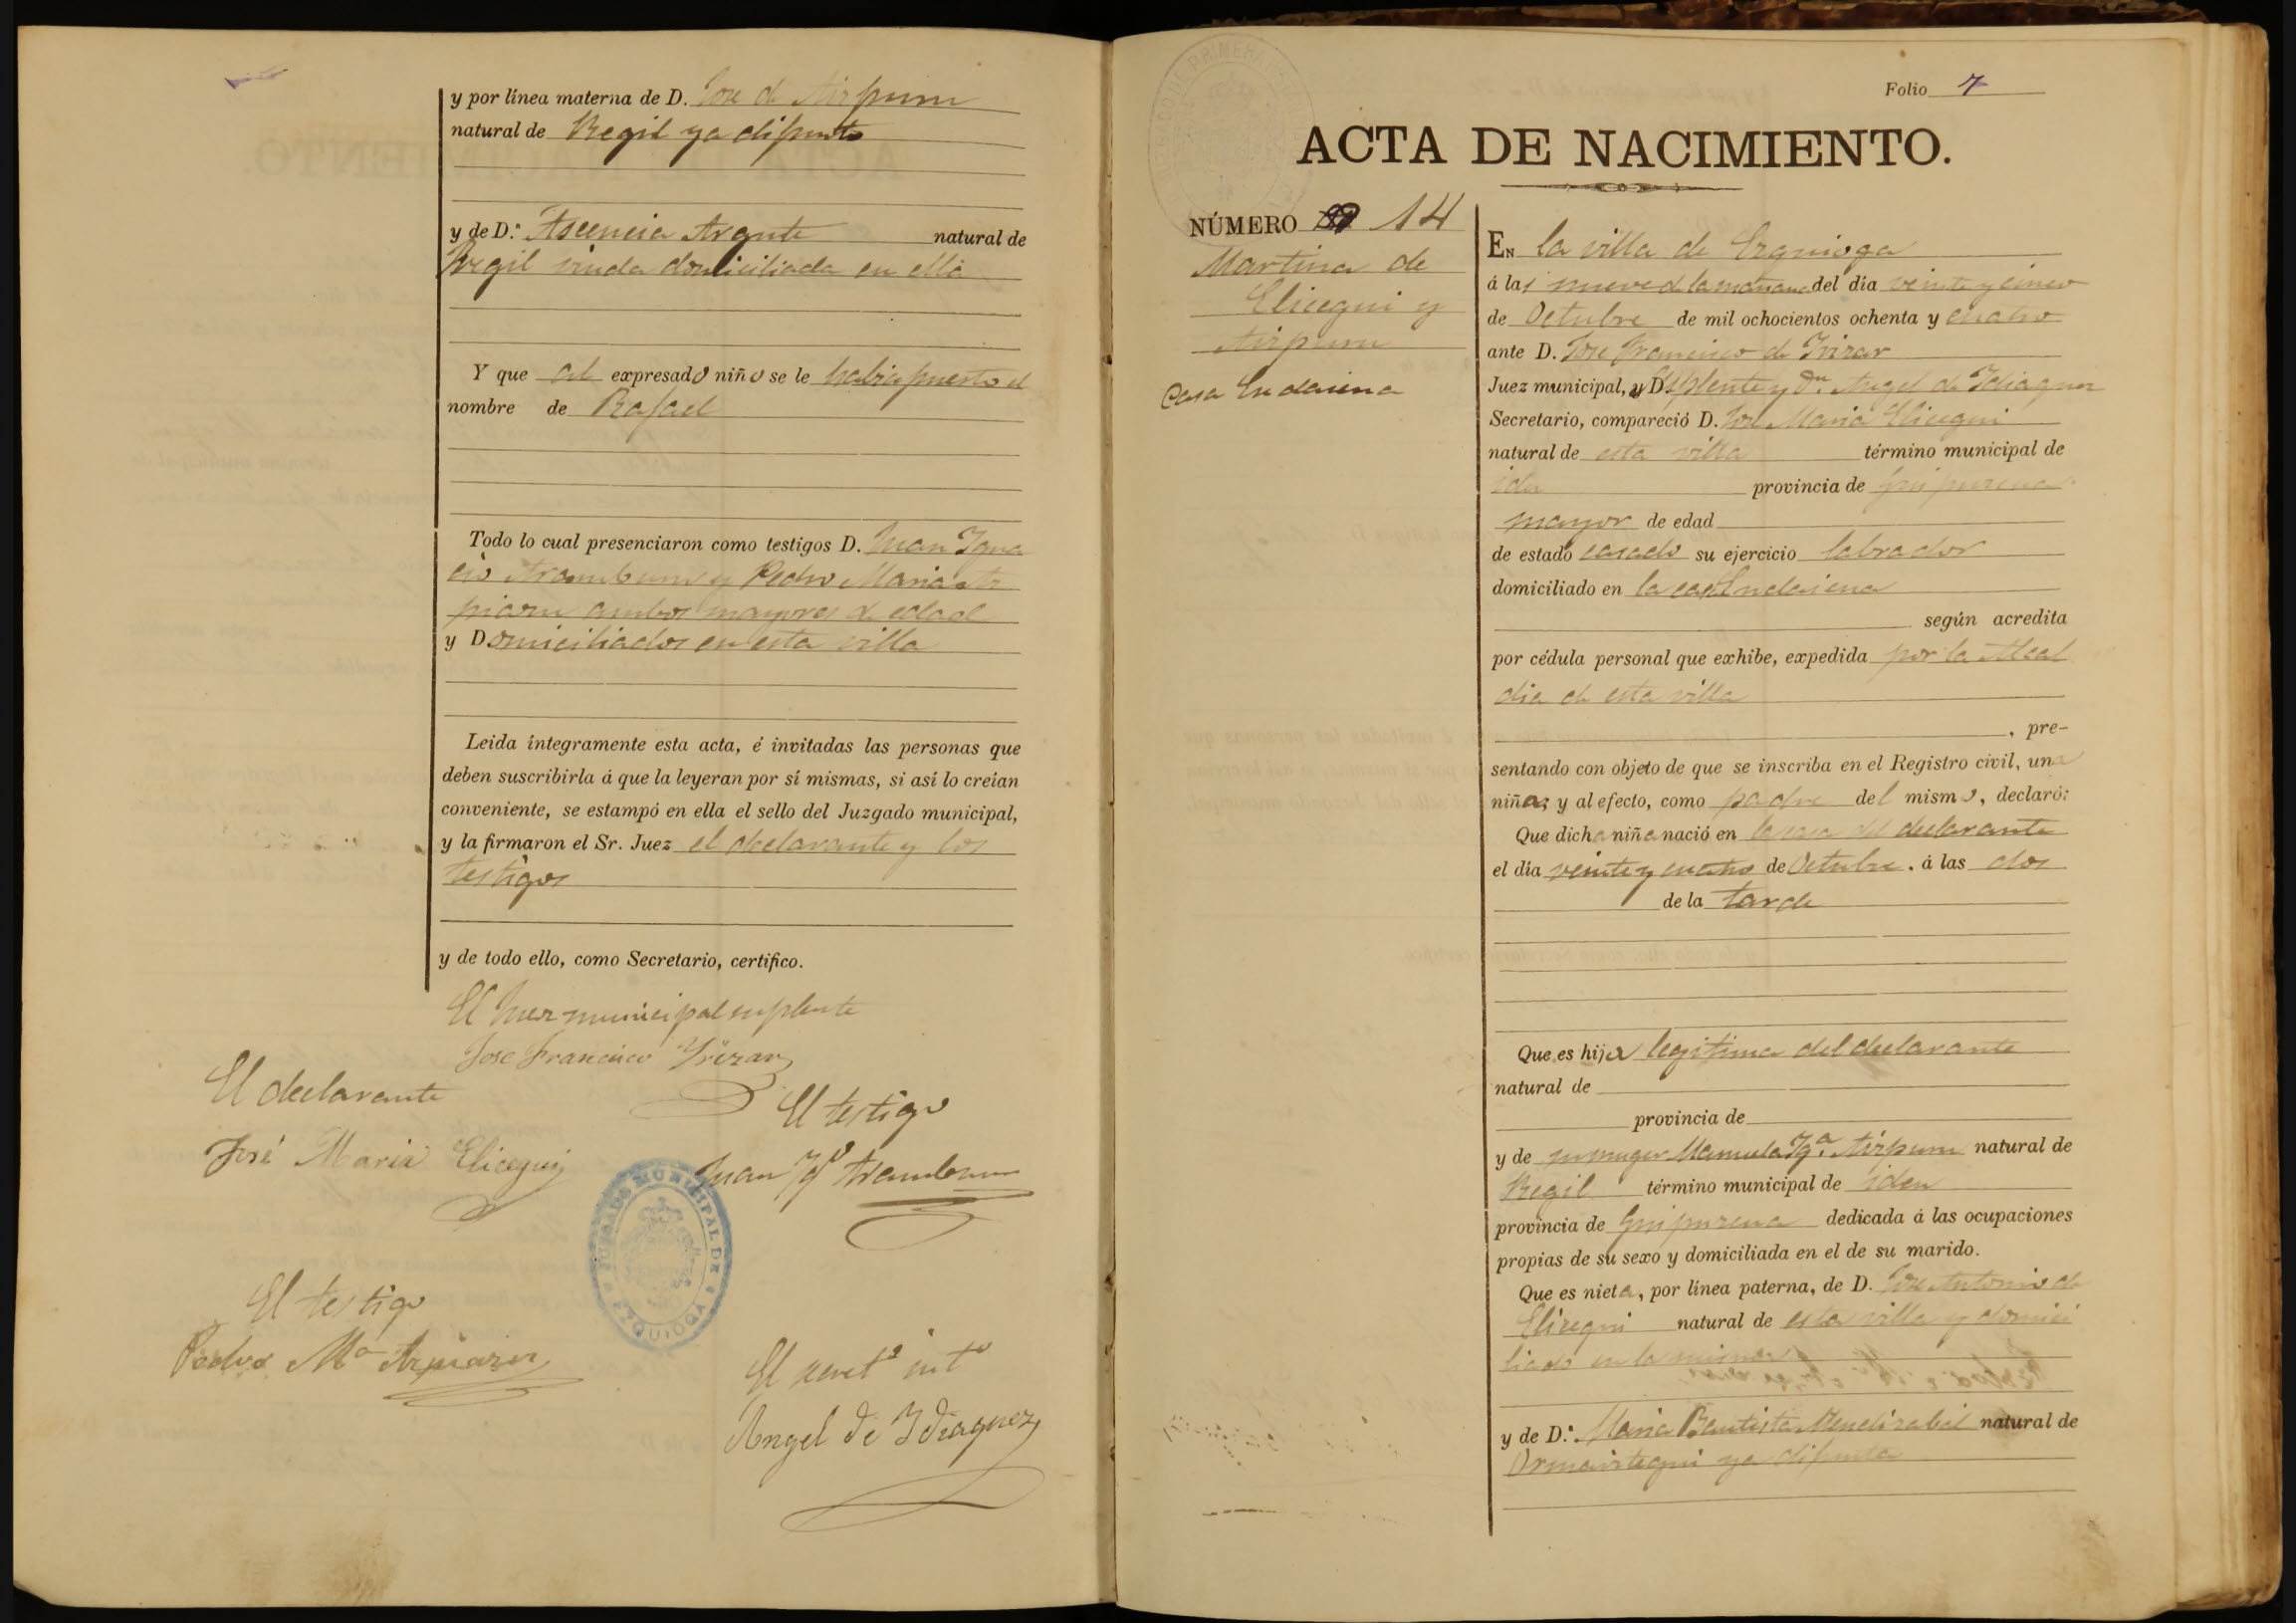 y por línea materna de D. Jose de Aizpuru
natural de Regil ya difunto
y de D.ª Ascencia Arguti natural de
Regil viuda domiciliada en ella
Y que al expresado niño se le habia puesto el
nombre de Rafael
Todo lo cual presenciaron como testigos D. Juan Igna
cio Aramburu y Pedro Maria Az
piazu ambos mayores de edad
y Domiciliados en esta villa
Leida íntegramente esta acta, é invitadas las personas que
deben suscribirla á que la leyeran por sí mismas, si así lo creían
conveniente, se estampó en ella el sello del Juzgado municipal,
y la firmaron el Sr. Juez el declarante y los
testigos
y de todo ello, como Secretario, certifico.
El Juez municipal suplente
Jose Francisco Yrizar
El declarante
José Maria Elicegui
El testigo
Juan Ygº Aramburu
JUZGADO MUNICIPAL DE EZQUIOGA
El testigo
Pedro Mª Azpiazu
El secretº intº
Angel de Idiaquez
Folio 7
ACTA DE NACIMIENTO.
NÚMERO 14
Martina de
Elicegui y
Aizpuru
Casa
En la villa de Ezquioga
á las nueve de la mañana del día veinte y cinco
de Octubre de mil ochocientos ochenta y cuatro
ante D. Jose Francisco de Irizar
Juez municipal, y D. Suplente y Dn. Angel de Idiaquez
Secretario, compareció D. Jose Maria Elicegui
natural de esta villa término municipal de
iden provincia de Guipuzcoa
mayor de edad
de estado casado su ejercicio labrador
domiciliado en la casa
según acredita
por cédula personal que exhibe, expedida por la Alcal
dia de esta villa
, pre-
sentando con objeto de que se inscriba en el Registro civil, una
niña; y al efecto, como padre del mismo, declaró:
Que dicha niña nació en la casa del declarante
el día veinte y cuatro de Octubre. á las dos
de la tarde
Que es hija legitima del declarante
natural de
provincia de
y de su muger Manuela Ygª. Aizpuru natural de
Regil término municipal de iden
provincia de Guipuzcoa dedicada á las ocupaciones
propias de su sexo y domiciliada en el de su marido.
Que es nieta, por línea paterna, de D. Jose Antonio de
Elicegui natural de esta villa y domici
liado en la misma
y de D.ª Maria Bautista Mendizabal natural de
Ormaiztegui ya difunta